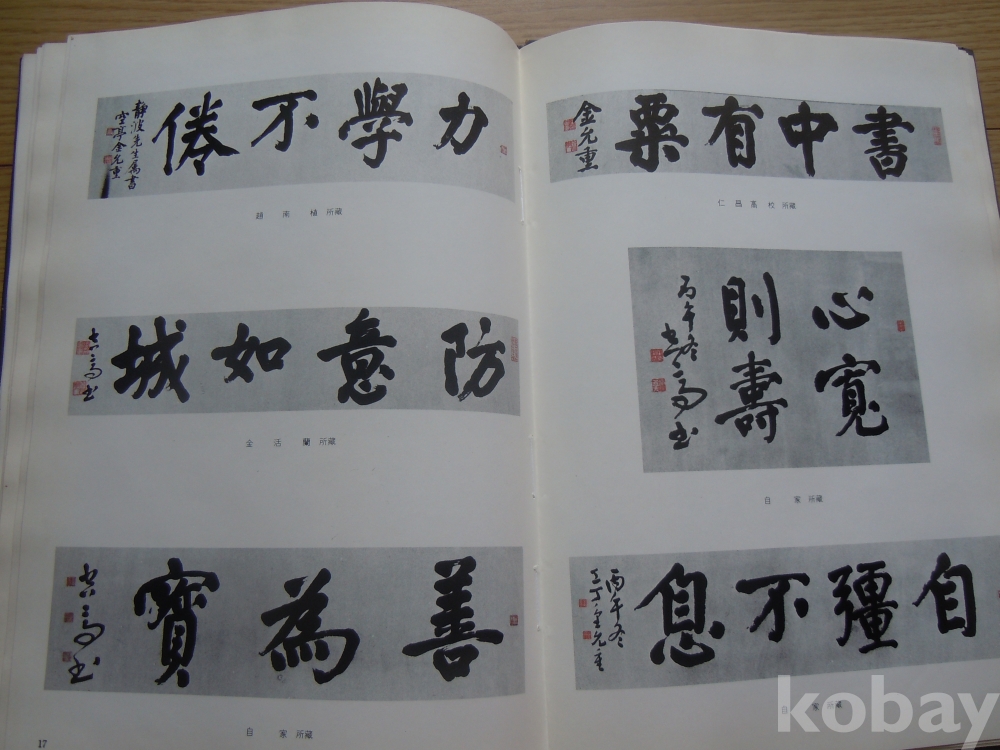 力學不倦
靜波先生属書
空亭金允重
趙 南 植 所藏
防意如城
金 活 蘭 所藏
善為寶
自 家 所藏
17
書中有粟
金允重
仁昌高校 所藏
心寬
則壽
丙午冬
自 家 所藏
自彊不息
丙午冬
金允重
自 家 所藏
kobay